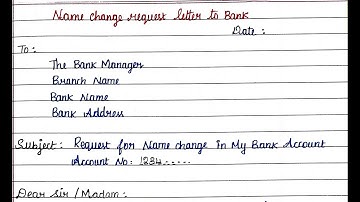 Name change request letter to Bank
Date :
To :
The Bank Manager
Branch Name
Bank Name
Bank Address
Subject : Request for Name change in My Bank Account
Account No: 1234.....
Dear Sir / Madam :